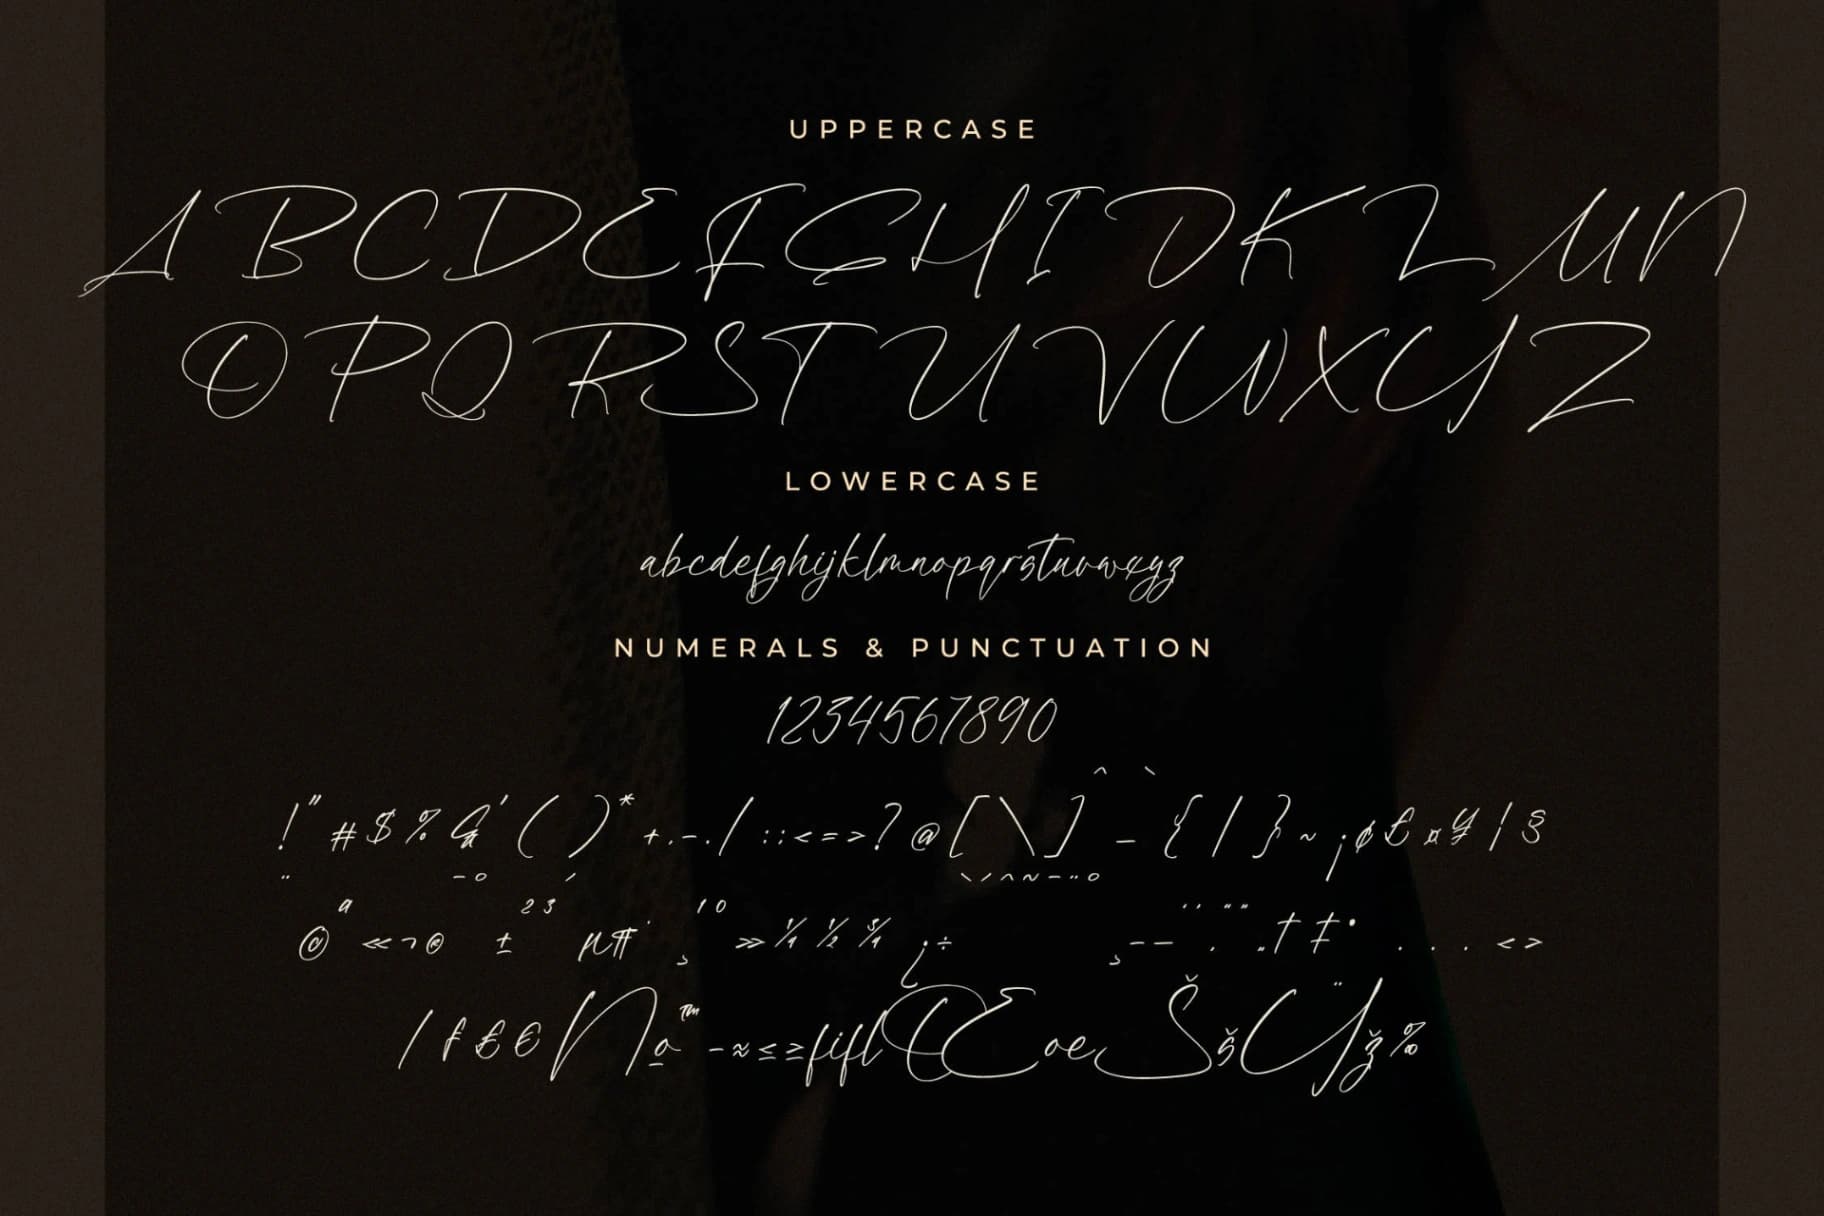 UPPERCASE
A B C D E F G H I J K L M N
O P Q R S T U V W X Y Z
LOWERCASE
abcdefghijklmnopqrstuvwxyz
NUMERALS & PUNCTUATION
1234567890
! " # $ % & ' ( ) * + , - . / : ; < = > ? @ [ \ ] ^ _ ` { | } ~ ¡ ¢ £ ¤ ¥ ¦ §
¨ © ª « ¬ ® ¯ ° ± ² ³ ´ µ ¶ · ¸ ¹ º » ¼ ½ ¾ ¿ ÷ – — ‘ ’ ‚ “ ” „ † ‡ • … ‹ ›
⁄ ƒ ₤ € ∏ º ™ − ≈ ≤ ≥ fi fl Œ œ Š š Ÿ ž ‰